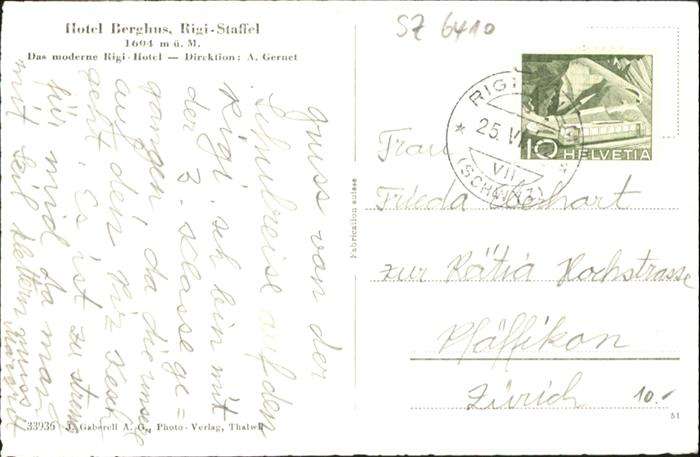 Hotel Berghus, Rigi-Staffel
1604 m ü. M.
Das moderne Rigi-Hotel — Direktion: A. Gernet
SZ 6410
RIGI
25. VI
VII
(SCHWYZ)
10 HELVETIA
gruss von der
Schulreise auf den
Rigi, ich bin mit
der 3. Klasse ge=
gangen, da die unsere
auf den Piz
geht. Es ist zu streng
für mich da man
mit Seil klettern muss
Frau
Frieda Eberhart
zur Rätia Hochstrasse
Pfäffikon
Zürich
10.-
Fabrication suisse
33936 J. Gaberell A. G., Photo-Verlag, Thalwil
51